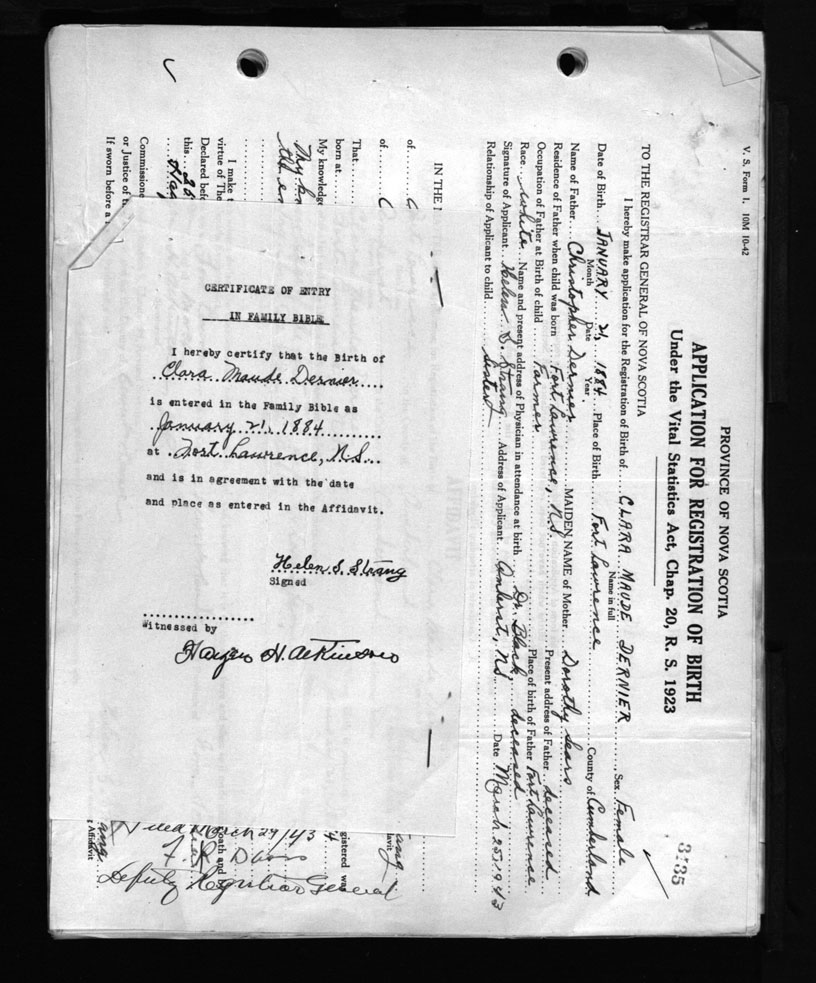 V. S. Form 1. 10M 10-42
PROVINCE OF NOVA SCOTIA
APPLICATION FOR REGISTRATION OF BIRTH
Under the Vital Statistics Act, Chap. 20, R. S. 1923
3135
TO THE REGISTRAR GENERAL OF NOVA SCOTIA
I hereby make application for the Registration of Birth of CLARA MAUDE DERNIER Sex Female
Name in full
Date of Birth JANUARY 21, 1884 Place of Birth Fort Lawrence County of Cumberland
Month Date Year
Name of Father Christopher Dernier MAIDEN NAME of Mother Dorothy Sears
Residence of Father when child was born Fort Lawrence, N.S. Present address of Father deceased
Occupation of Father at Birth of child Farmer Place of birth of Father Fort Lawrence
Race white Name and present address of Physician in attendance at birth Dr. Black deceased
Signature of Applicant Helen S. Strang Address of Applicant Amherst, NS Date March 25, 1943
Relationship of Applicant to child Sister
IN THE
of
of C
That
born at
My knowledg
My kn
I make t
virtue of The
Declared befo
this 25
Commissione
or Justice of t
If sworn before a
gistered was
oath and
Filed March 29/43
Deputy Registrar General
Affidavit
CERTIFICATE OF ENTRY
IN FAMILY BIBLE
I hereby certify that the Birth of
Clara Maude Dernier
is entered in the Family Bible as
January 21, 1884
at Fort Lawrence, N.S.
and is in agreement with the date
and place as entered in the Affidavit.
Helen S. Strang
Signed
Witnessed by